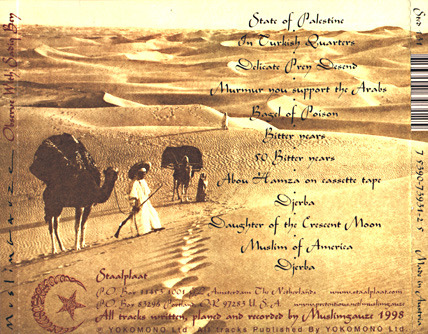 State of Palestine
In Turkish Quarters
Delicate Prey Desend
Murmur you support the Arabs
Bagel of Poison
Bitter years
50 Bitter years
Abou Hamza on cassette tape
Djerba
Daughter of the Crescent Moon
Muslim of America
Djerba
Staalplaat
P.O. Box Amsterdam The Netherlands www.staalplaat.com
P.O. Box 83296 Portland OR 97283 U.S.A.
All tracks written, played and recorded by Muslimgauze 1998
© YOKOMONO Ltd. All tracks Published By YOKOMONO Ltd.
Muslimgauze
Observe With Sadiq Bey
Made in America